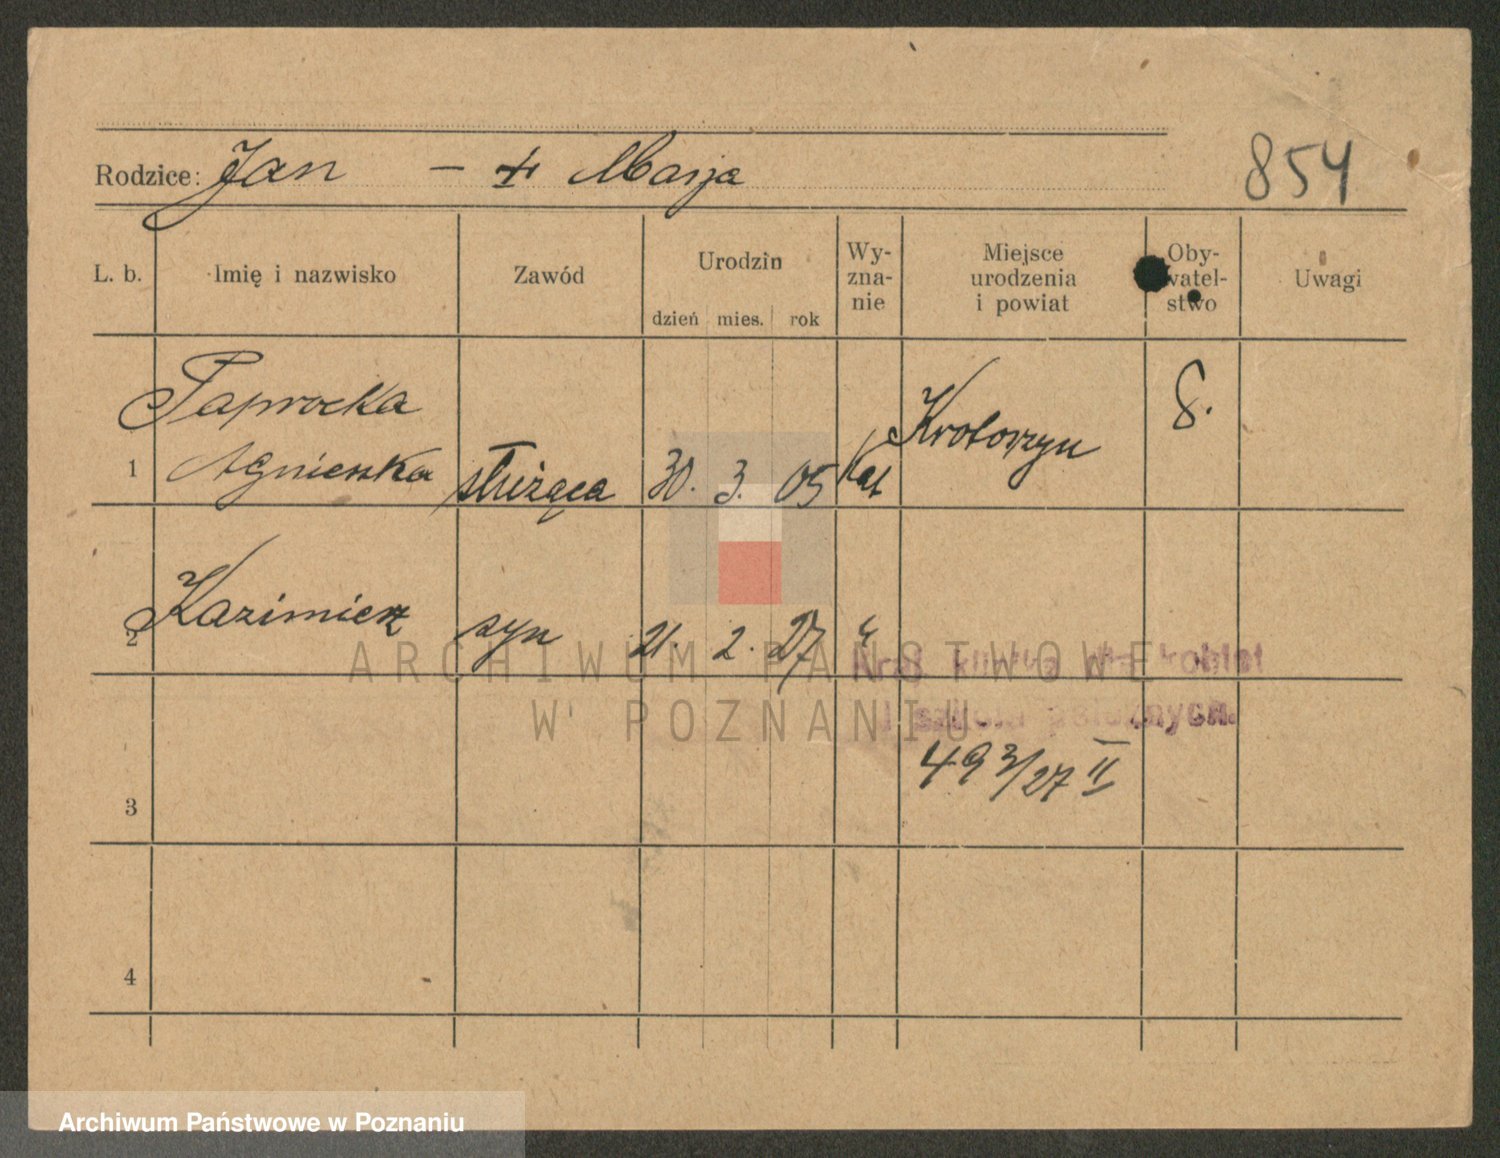 854
Rodzice: Jan – + Marja
L. b. Imię i nazwisko Zawód Urodzin dzień mies. rok Wy-zna-nie Miejsce urodzenia i powiat Oby-watel-stwo Uwagi
Paprocka
1 Agnieszka służąca 30. 3. 05 Kat Krotoszyn
2 Kazimierz syn 21. 2. 27 "
Kraj. klinika dla kobiet
i szkoła położnych.
493/27 II
3
4
ARCHIWUM PAŃSTWOWE
W POZNANIU
Archiwum Państwowe w Poznaniu